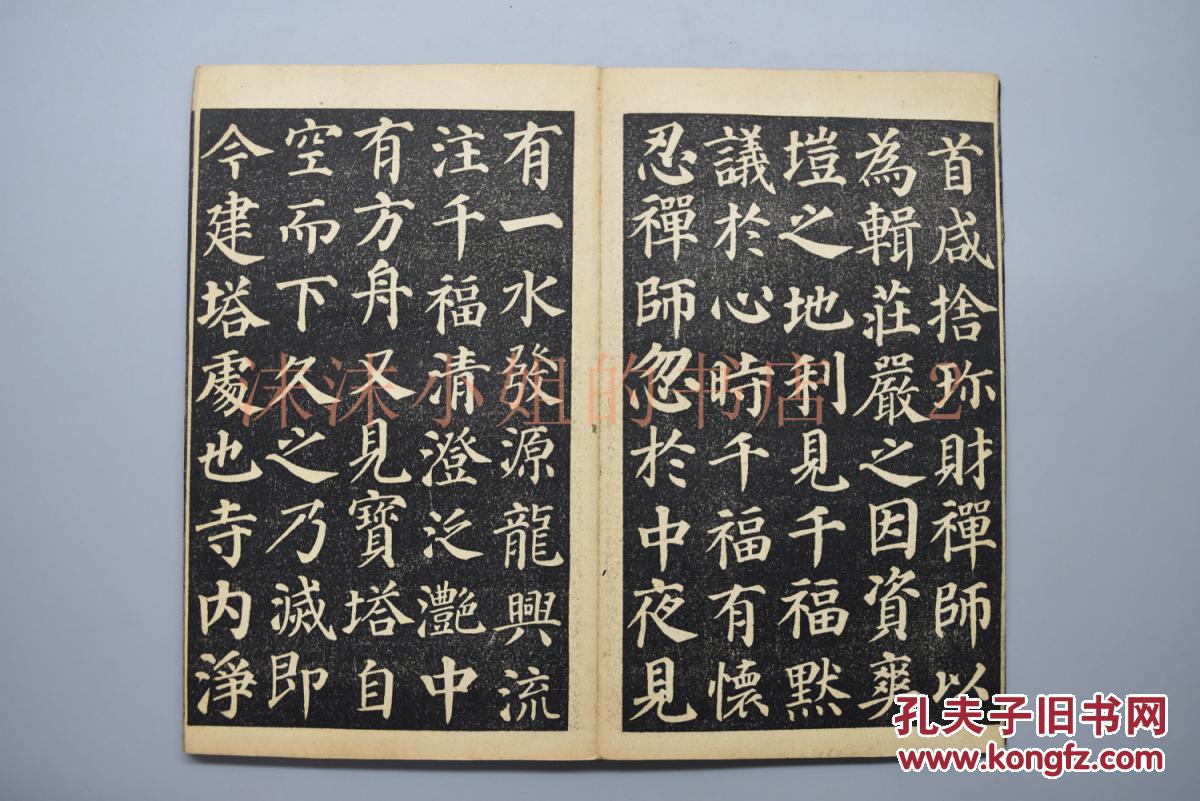 首咸捨珎財禪師以
為輯莊嚴之因資爽
塏之地利見千福默
議於心時千福有懷
忍禪師忽於中夜見
有一水發源龍興流
注千福清澄泛灔中
有方舟又見寶塔自
空而下久之乃滅即
今建塔處也寺內淨
沫沫小姐的书店 2
孔夫子旧书网
www.kongfz.com